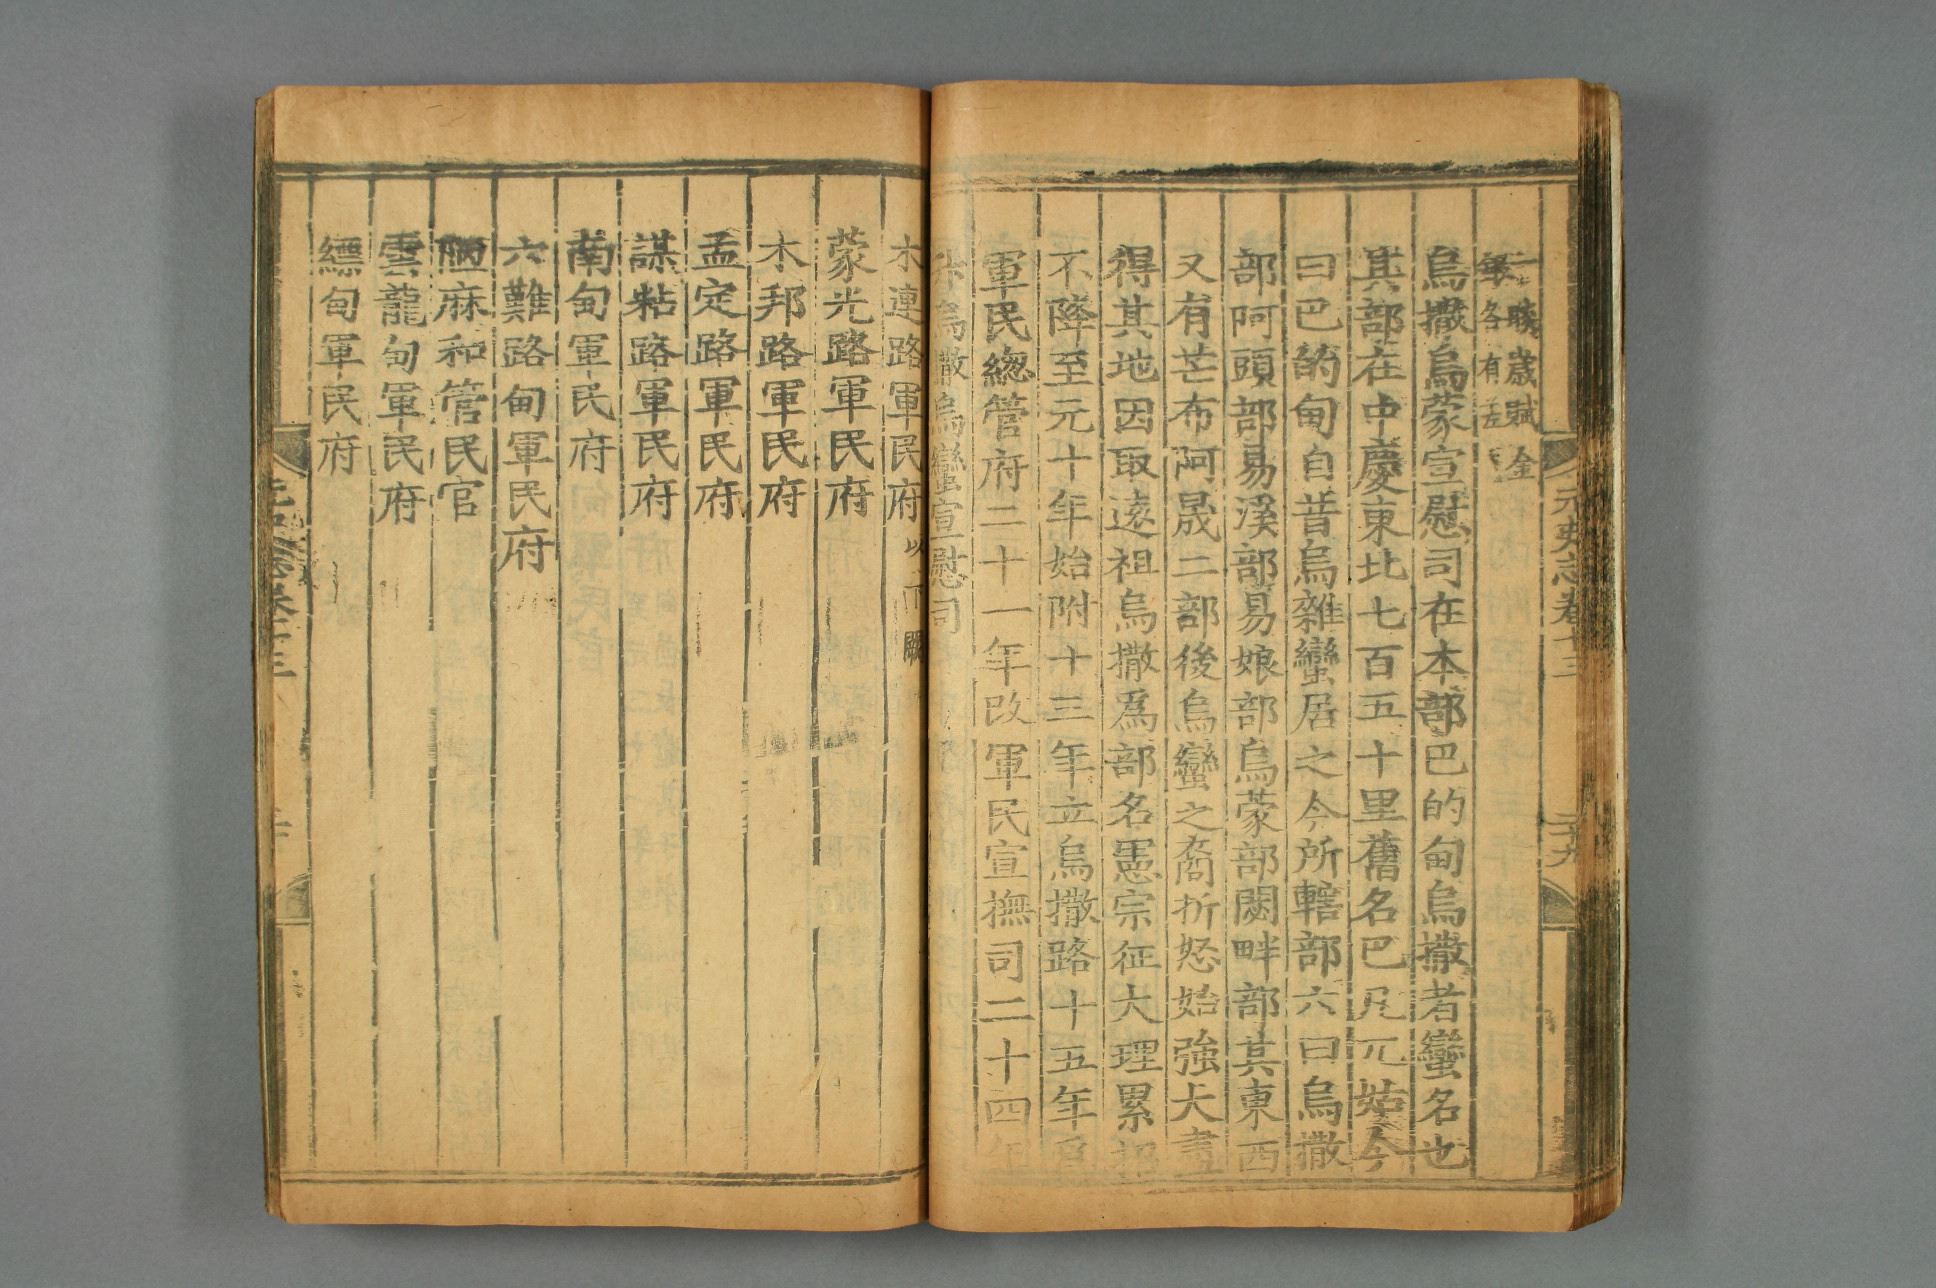 元史志卷十三
二十九
賧歲賦金
銀各有差
烏撒烏蒙宣慰司在本部巴的甸烏撒者蠻名也
其部在中慶東北七百五十里舊名巴凡兀姑今
曰巴的甸自昔烏雜蠻居之今所轄部六曰烏撒
部阿頭部易溪部易娘部烏蒙部閟畔部其東西
又有芒布阿晟二部後烏蠻之裔折怒始強大盡
得其地因取遠祖烏撒為部名憲宗征大理累招
不降至元十年始附十三年立烏撒路十五年為
軍民總管府二十一年改軍民宣撫司二十四年
升烏撒烏蠻宣慰司
木連路軍民府以下闕
蒙光路軍民府
木邦路軍民府
孟定路軍民府
謀粘路軍民府
南甸軍民府
六難路甸軍民府
陋麻和管民官
雲龍甸軍民府
縹甸軍民府